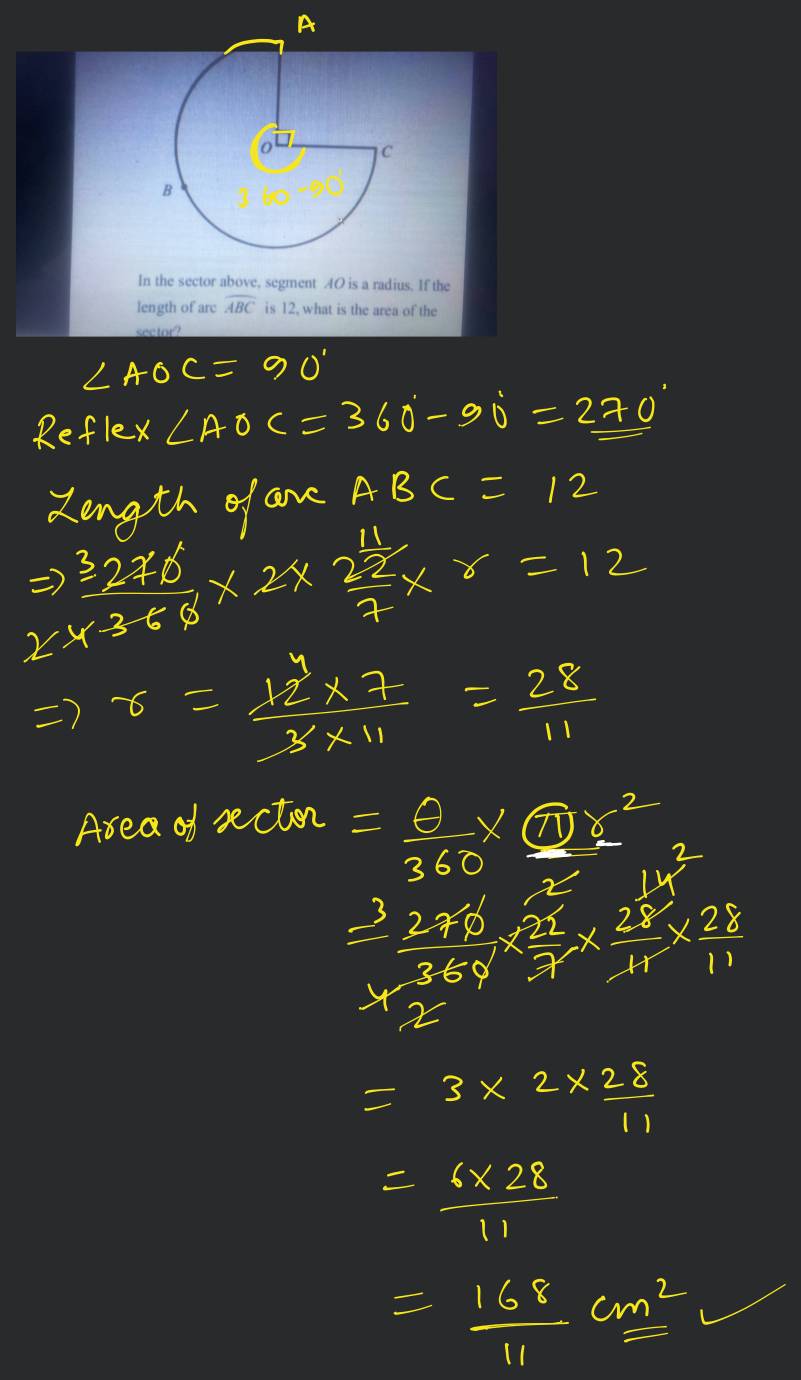 A
O
C
B
360-90°
In the sector above, segment AO is a radius. If the
length of arc ABC is 12, what is the area of the
sector?
∠AOC = 90°
Reflex ∠AOC = 360° - 90° = 270°
Length of arc ABC = 12
11
⇒ 3 270 / 2 4 360 × 2 × 22/7 × r = 12
4
⇒ r = 12 × 7 / 3 × 11 = 28/11
Area of sector = θ/360 × πr²
2 14 2
= 3 270 / 4 360 × 22/7 × 28/11 × 28/11
2
= 3 × 2 × 28/11
= 6 × 28 / 11
= 168/11 cm² ✓